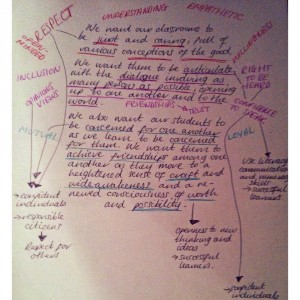 UNDERSTANDING
EMPATHETIC
RESPECT
OPEN-
MINDED
We want our classrooms to
be just and caring, full of
various conceptions of the good.
We want them to be articulate
with the dialogue involving as
many persons as possible, opening
up to one another and to the
world.
FRIENDSHIPS
TRUST
We also want our students to
be concerned for one another
as we learn to be concerned
for them. We want them to
achieve friendships among one
another as they move to a
heightened sense of craft and
wide-awakeness and a re-
newed consciousness of worth
and possibility.
INCLUSION
OPINIONS
VIEWS
MUTUAL
confident
individuals
responsible
citizens
Respect for
others
RIGHT
TO BE
HEARD
CONFIDENCE
LOYAL
use literacy
communication
and
skills
successful
learners.
openness to new
thinking and
ideas
successful
learners.
confident
individuals